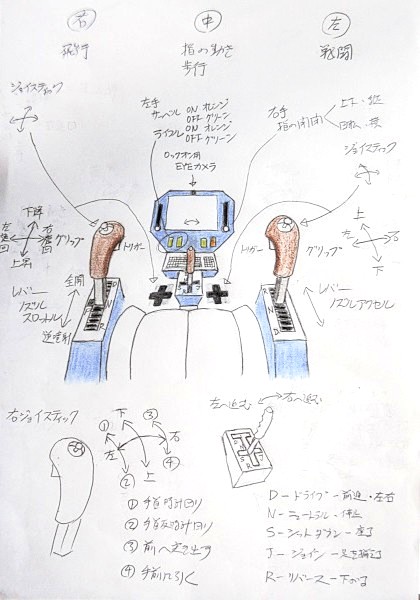 右
中
左
飛行
指の動き
歩行
戦闘
ジョイスティック
左手
サーベル ON オレンジ
OFF グリーン
ライフル ON オレンジ
OFF グリーン
右手
指の開閉
ロックオン用
EYEカメラ
ジョイスティック
下降
左旋回
右旋回
グリップ
上昇
トリガー
トリガー
グリップ
上
左
右
下
全開
レバー
ノズル
スロットル
逆噴射
レバー
ノズルアクセル
N
R
N
D
右ジョイスティック
下
①
③
左
右
②
上
④
① 手首時計回り
② 手首反時計回り
③ 前へ突き出す
④ 手前に引く
左へ進む
右へ進む
D－ドライブ－前進・左右
N－ニュートラル－停止
S－シットダウン－座る
J－ジョイン－足を揃える
R－リバース－下がる